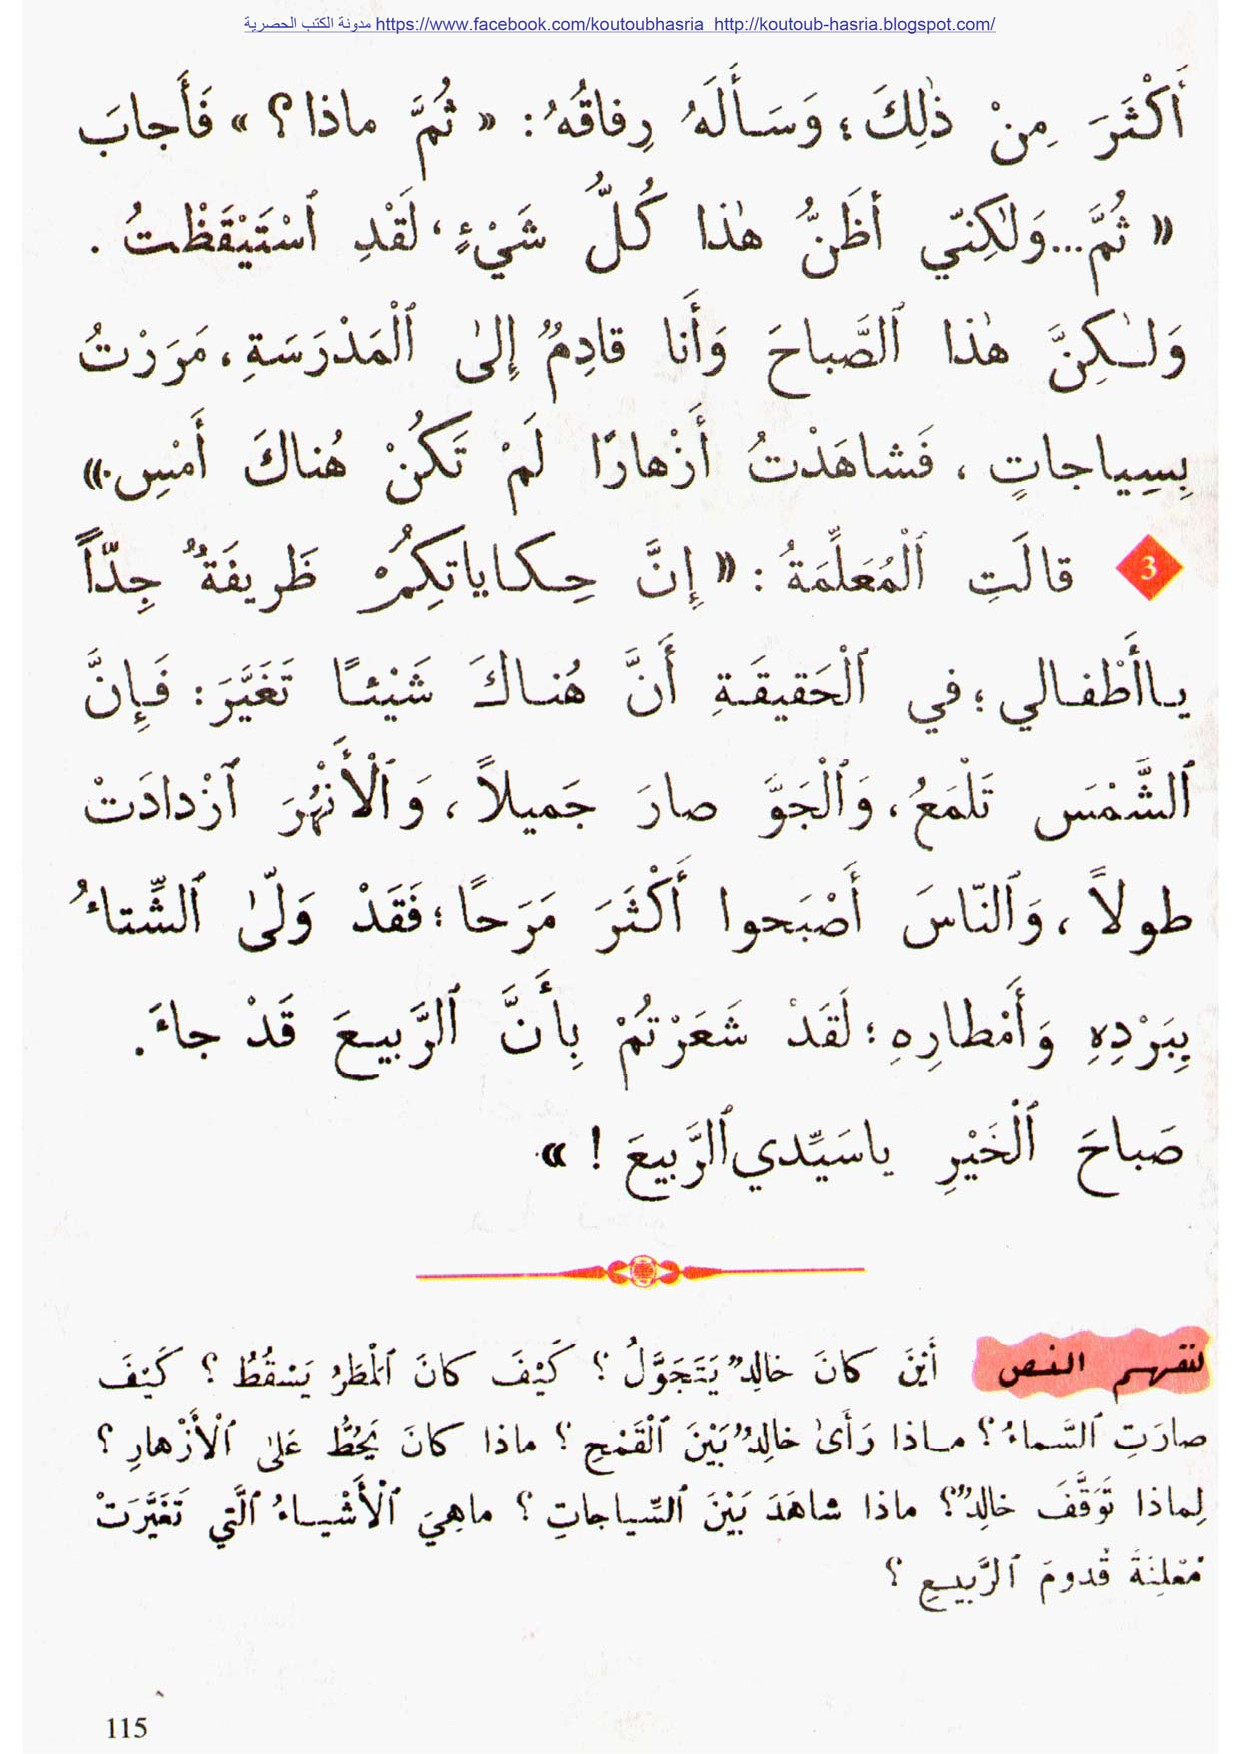 مدونة الكتب الحصرية https://www.facebook.com/koutoubhasria http://koutoub-hasria.blogspot.com/
أَكْثَرَ مِنْ ذٰلِكَ ؛ وَسَأَلَهُ رِفاقُهُ : « ثُمَّ ماذا ؟ » فَأَجابَ
« ثُمَّ...وَلٰكِنّي أظَنُّ هٰذا كُلُّ شَيْءٍ ، لَقَدِ ٱسْتَيْقَظْتُ .
وَلٰكِنَّ هٰذا ٱلصَّباحَ وَأَنا قادِمٌ إِلىٰ ٱلْمَدْرَسَةِ ، مَرَرْتُ
بِسِياجاتٍ ، فَشاهَدْتُ أَزْهارًا لَمْ تَكُنْ هُناكَ أَمْسِ .»
3 قالَتِ ٱلْمُعَلِّمَةُ : « إِنَّ حِكاياتِكِمُْ ظَريفَةٌ جِدّاً
ياأَطْفالي ؛ في ٱلْحَقيقَةِ أَنَّ هُناكَ شَيْئًا تَغَيَّرَ : فَإِنَّ
ٱلشَّمْسَ تَلْمَعُ ، وَٱلْجَوَّ صارَ جَميلاً ، وَٱلْأَنْهُرَ ٱزْدادَتْ
طولاً ، وَٱلنّاسَ أَصْبَحوا أَكْثَرَ مَرَحًا ؛ فَقَدْ وَلّىٰ ٱلشِّتاءُ
بِبَرْدِهِ وَأَمْطارِهِ ؛ لَقَدْ شَعَرْتُمْ بِأَنَّ ٱلرَّبيعَ قَدْ جاءَ .
صَباحَ ٱلْخَيْرِ ياسَيِّدي ٱلرَّبيعَ ! »
لنفهم النص أَيْنَ كانَ خالِدٌ يَتَجَوَّلُ ؟ كَيْفَ كانَ ٱلْمَطَرُ يَسْقُطُ ؟ كَيْفَ
صارَتِ ٱلسَّماءُ ؟ ماذا رَأَىٰ خالِدٌ بَيْنَ ٱلْقَمْحِ ؟ ماذا كانَ يَحُطُّ عَلىٰ ٱلْأَزْهارِ ؟
لِماذا تَوَقَّفَ خالِدٌ ؟ ماذا شاهَدَ بَيْنَ ٱلسِّياجاتِ ؟ ماهِيَ ٱلْأَشْياءُ ٱلَّتي تَغَيَّرَتْ
مُعْلِنَةً قُدومَ ٱلرَّبيعِ ؟
115